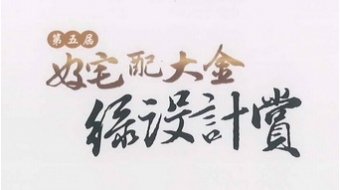 第五屆
好宅配大金
綠設計賞